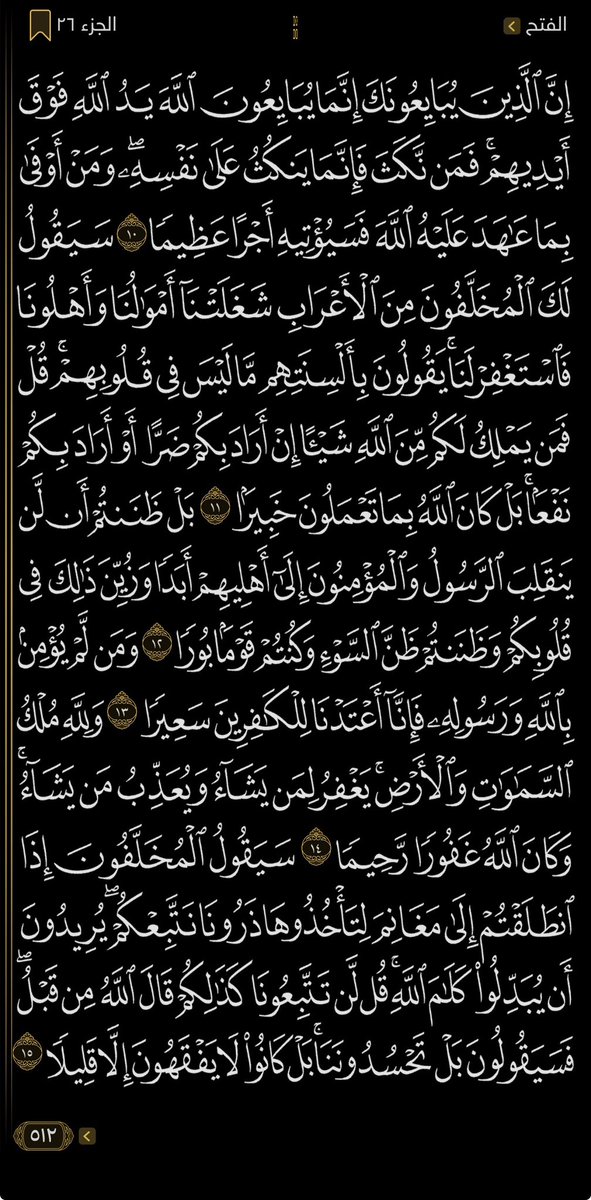 الفتح
الجزء ٢٦
إِنَّ ٱلَّذِينَ يُبَايِعُونَكَ إِنَّمَا يُبَايِعُونَ ٱللَّهَ يَدُ ٱللَّهِ فَوْقَ
أَيْدِيهِمْۚ فَمَن نَّكَثَ فَإِنَّمَا يَنكُثُ عَلَىٰ نَفْسِهِۦۖ وَمَنْ أَوْفَىٰ
بِمَا عَٰهَدَ عَلَيْهُ ٱللَّهَ فَسَيُؤْتِيهِ أَجْرًا عَظِيمًا ١٠ سَيَقُولُ
لَكَ ٱلْمُخَلَّفُونَ مِنَ ٱلْأَعْرَابِ شَغَلَتْنَآ أَمْوَٰلُنَا وَأَهْلُونَا
فَٱسْتَغْفِرْ لَنَاۚ يَقُولُونَ بِأَلْسِنَتِهِم مَّا لَيْسَ فِى قُلُوبِهِمْۚ قُلْ
فَمَن يَمْلِكُ لَكُم مِّنَ ٱللَّهِ شَيْـًٔا إِنْ أَرَادَ بِكُمْ ضَرًّا أَوْ أَرَادَ بِكُمْ
نَفْعًۢاۚ بَلْ كَانَ ٱللَّهُ بِمَا تَعْمَلُونَ خَبِيرًۢا ١١ بَلْ ظَنَنتُمْ أَن لَّن
يَنقَلِبَ ٱلرَّسُولُ وَٱلْمُؤْمِنُونَ إِلَىٰٓ أَهْلِيهِمْ أَبَدًا وَزُيِّنَ ذَٰلِكَ فِى
قُلُوبِكُمْ وَظَنَنتُمْ ظَنَّ ٱلسَّوْءِ وَكُنتُمْ قَوْمًۢا بُورًا ١٢ وَمَن لَّمْ يُؤْمِنۢ
بِٱللَّهِ وَرَسُولِهِۦ فَإِنَّآ أَعْتَدْنَا لِلْكَٰفِرِينَ سَعِيرًا ١٣ وَلِلَّهِ مُلْكُ
ٱلسَّمَٰوَٰتِ وَٱلْأَرْضِۚ يَغْفِرُ لِمَن يَشَآءُ وَيُعَذِّبُ مَن يَشَآءُۚ
وَكَانَ ٱللَّهُ غَفُورًا رَّحِيمًا ١٤ سَيَقُولُ ٱلْمُخَلَّفُونَ إِذَا
ٱنطَلَقْتُمْ إِلَىٰ مَغَانِمَ لِتَأْخُذُوهَا ذَرُونَا نَتَّبِعْكُمْۖ يُرِيدُونَ
أَن يُبَدِّلُوا۟ كَلَٰمَ ٱللَّهِۚ قُل لَّن تَتَّبِعُونَا كَذَٰلِكُمْ قَالَ ٱللَّهُ مِن قَبْلُۖ
فَسَيَقُولُونَ بَلْ تَحْسُدُونَنَاۚ بَلْ كَانُوا۟ لَا يَفْقَهُونَ إِلَّا قَلِيلًا ١٥
٥١٢